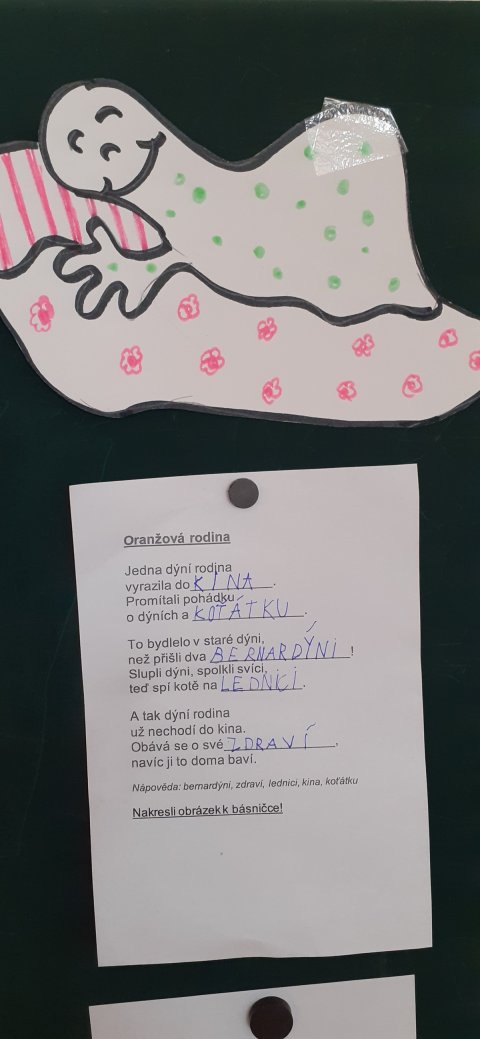 Oranžová rodina
Jedna dýní rodina
vyrazila do KINA.
Promítali pohádku
o dýních a KOŤÁTKU.
To bydlelo v staré dýni,
než přišli dva BERNARDÝNI!
Slupli dýni, spolkli svíci,
teď spí kotě na LEDNICI.
A tak dýní rodina
už nechodí do kina.
Obává se o své ZDRAVÍ,
navíc ji to doma baví.
Nápověda: bernardýni, zdraví, lednici, kina, koťátku
Nakresli obrázek k básničce!